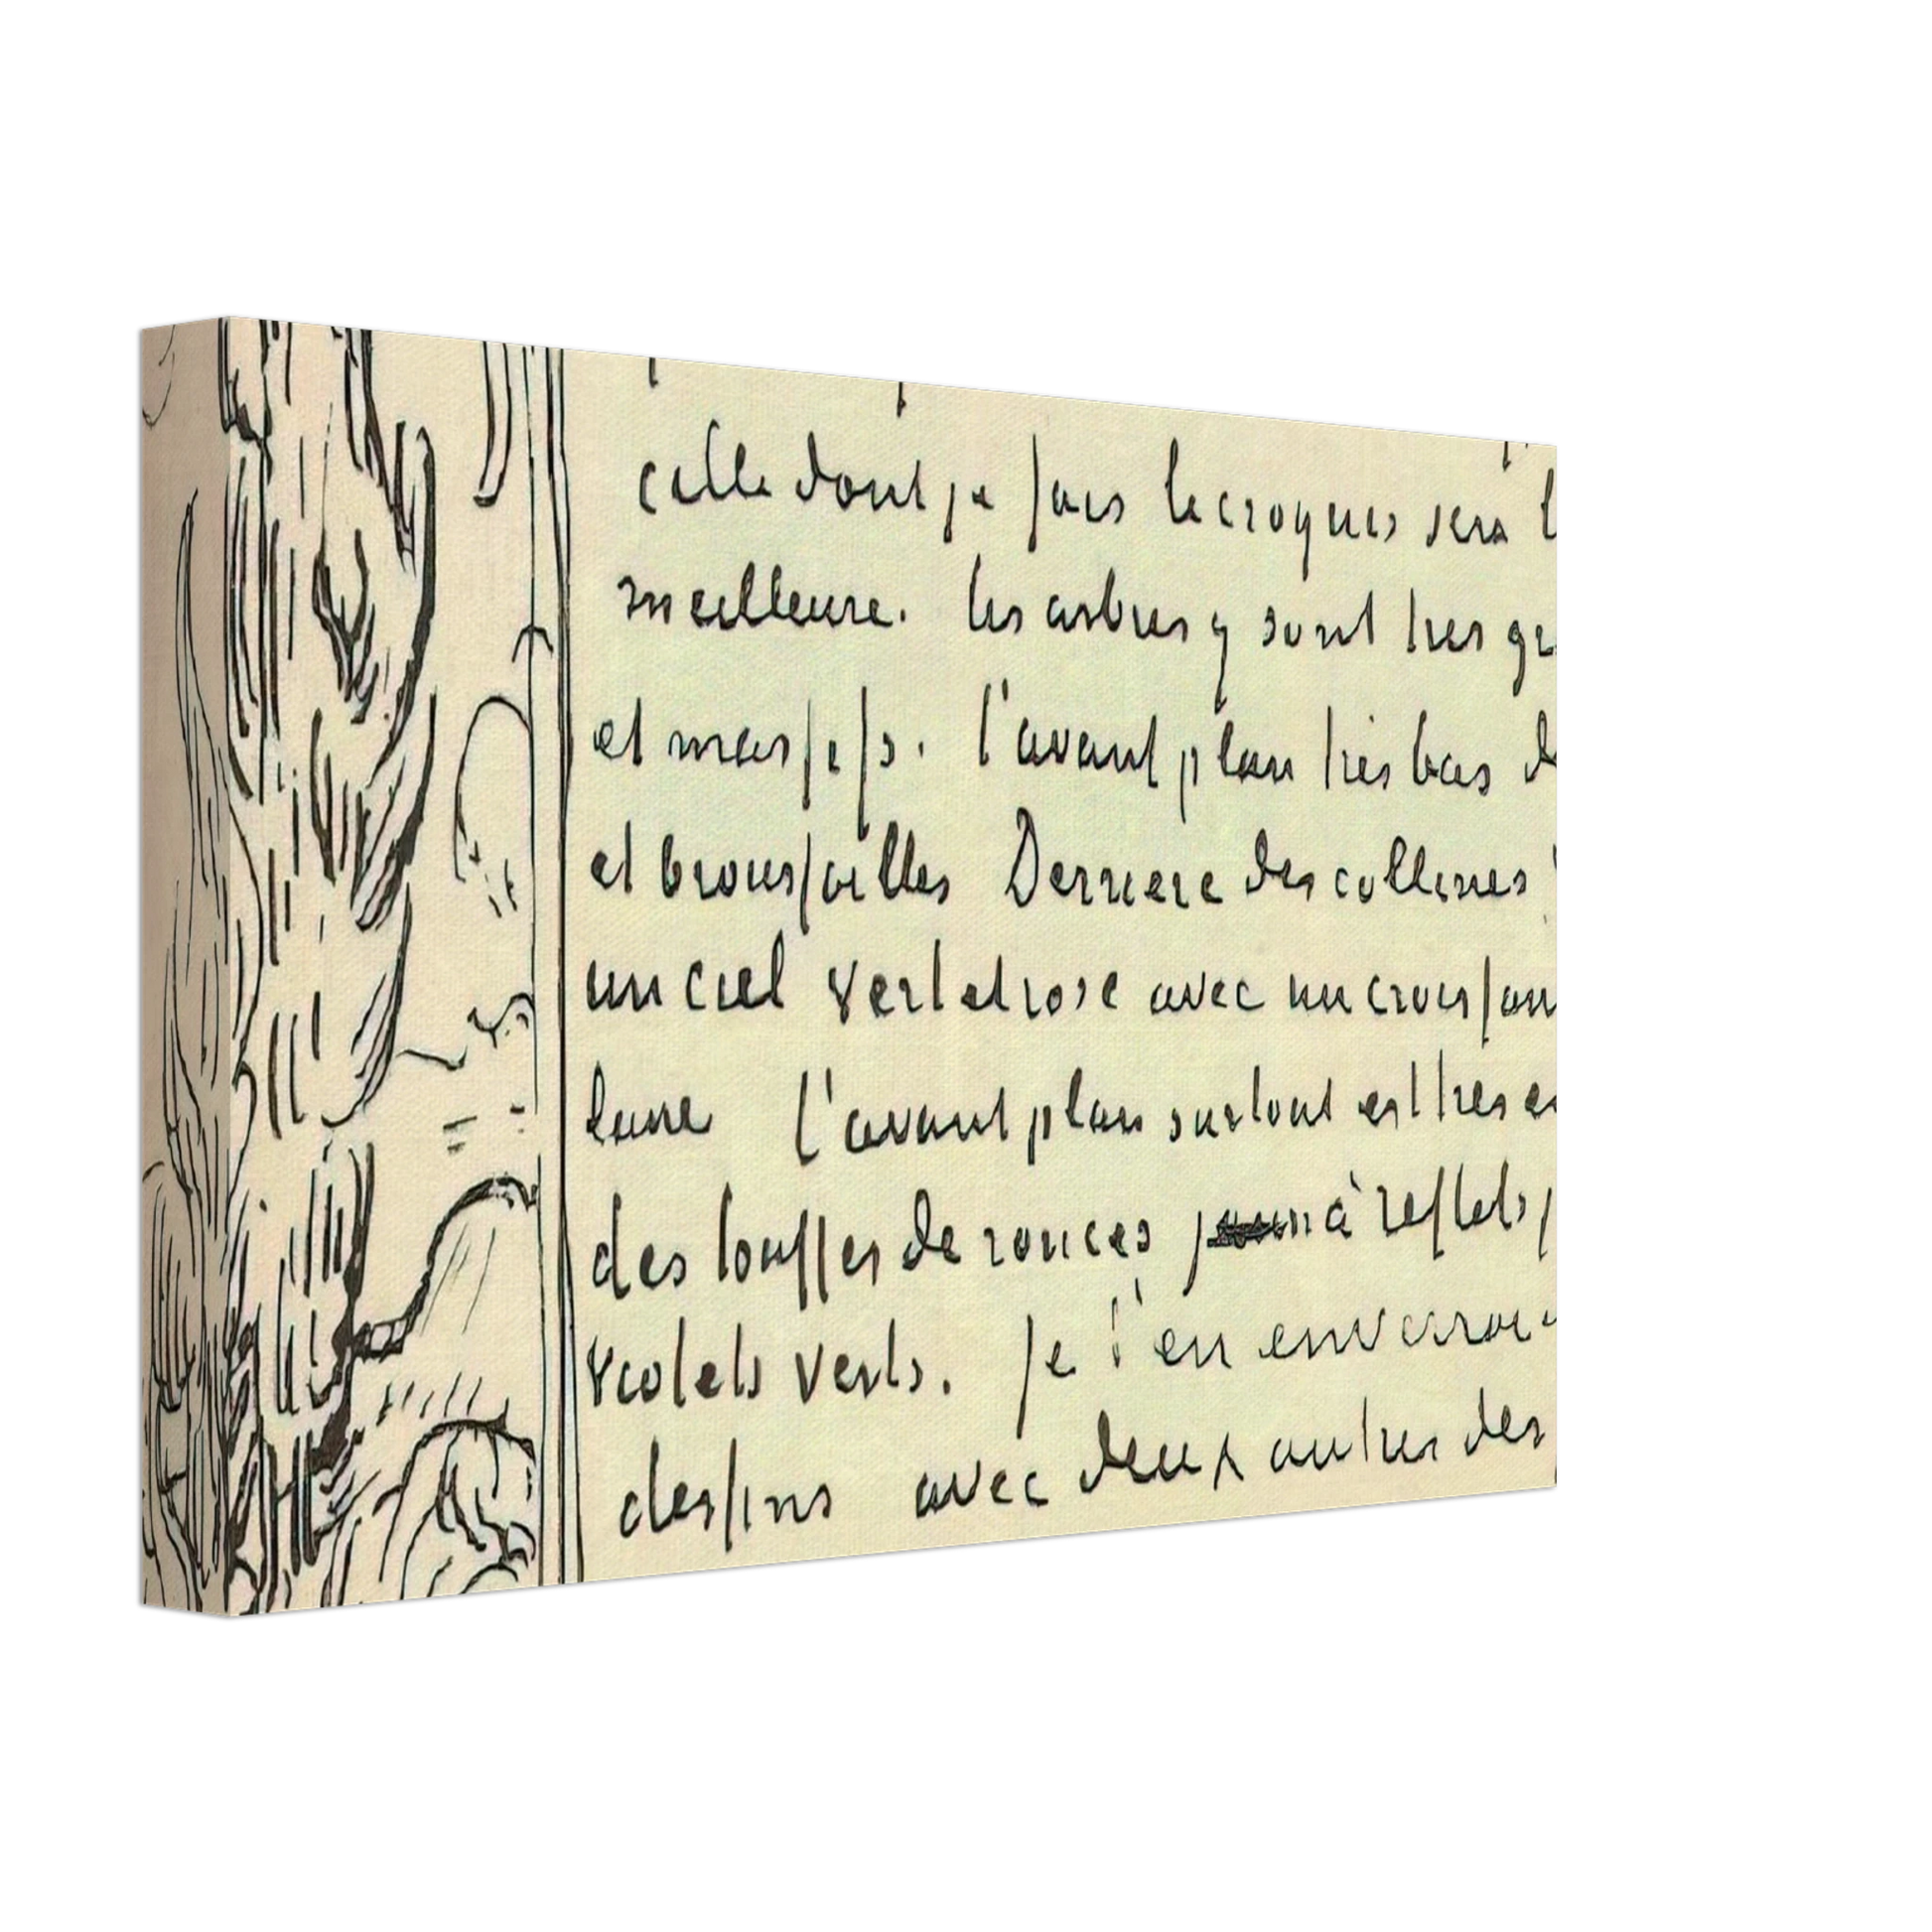 celle dont je fais le croquis sera l
meilleure. les arbres y sont tres gr
et massifs. l'avant plan très bas d
et broussailles Derriere des collines
un ciel vert et rose avec un croissan
lune l'avant plan surtout est tres e
des touffes de ronces à reflets
violets verts. je t'en enverrai
dessins avec deux autres des